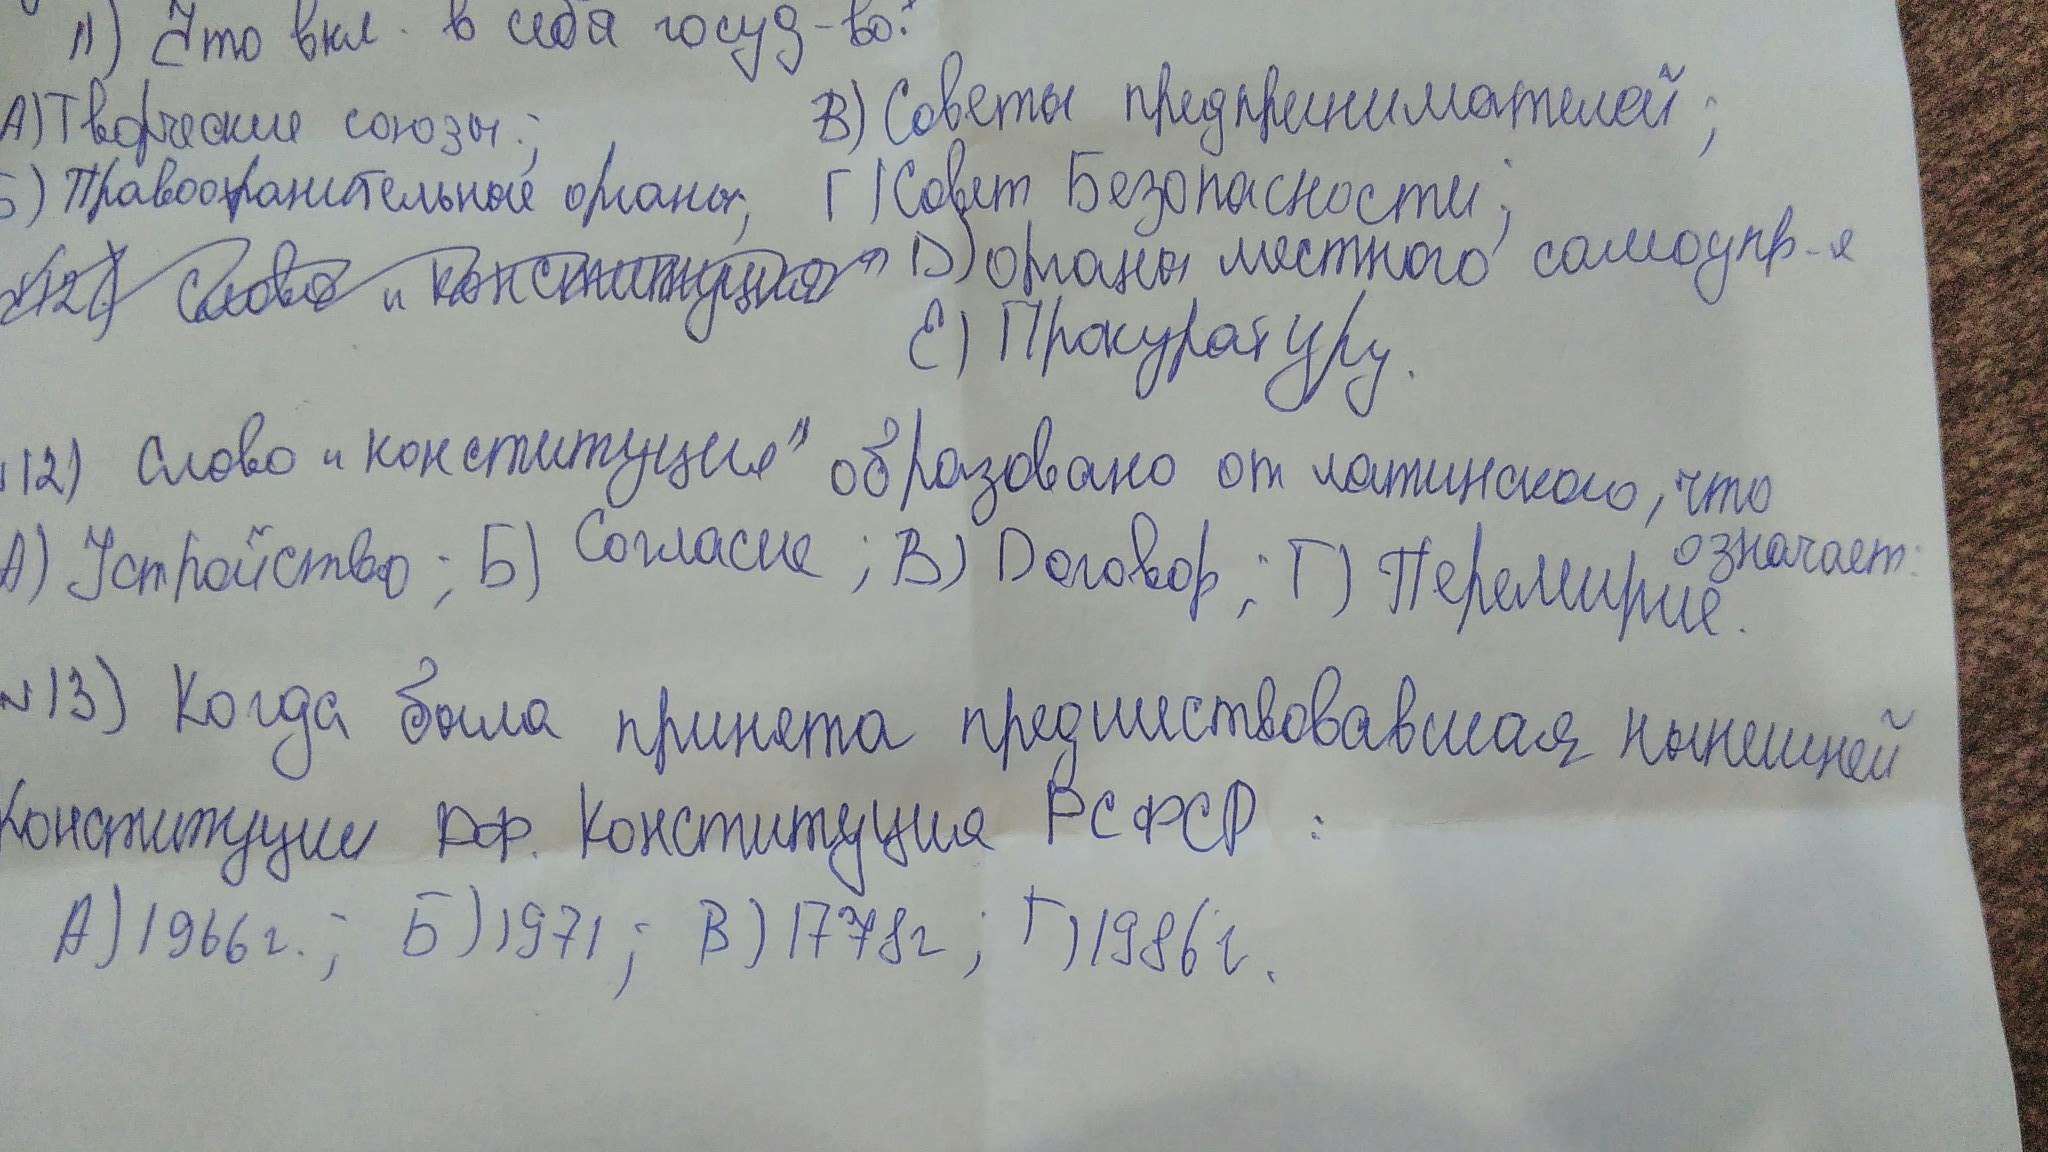 11) Что вкл. в себя госуд-во?
А) Творческие союзы.; В) Советы предпринимателей;
Б) Правоохранительные органы; Г) Совет Безопасности;
12) Слово "конституция" D) органы местного самоупр-я
Е) Прокуратуру.
12) Слово "конституция" образовано от латинского, что
означает:
А) Устройство; Б) Согласие; В) Договор; Г) Перемирие.
№13) Когда была принята предшествовавшая нынешней
Конституции РФ. Конституция РСФСР :
А) 1966г.; Б) 1971; В) 1778г; Г) 1986г.